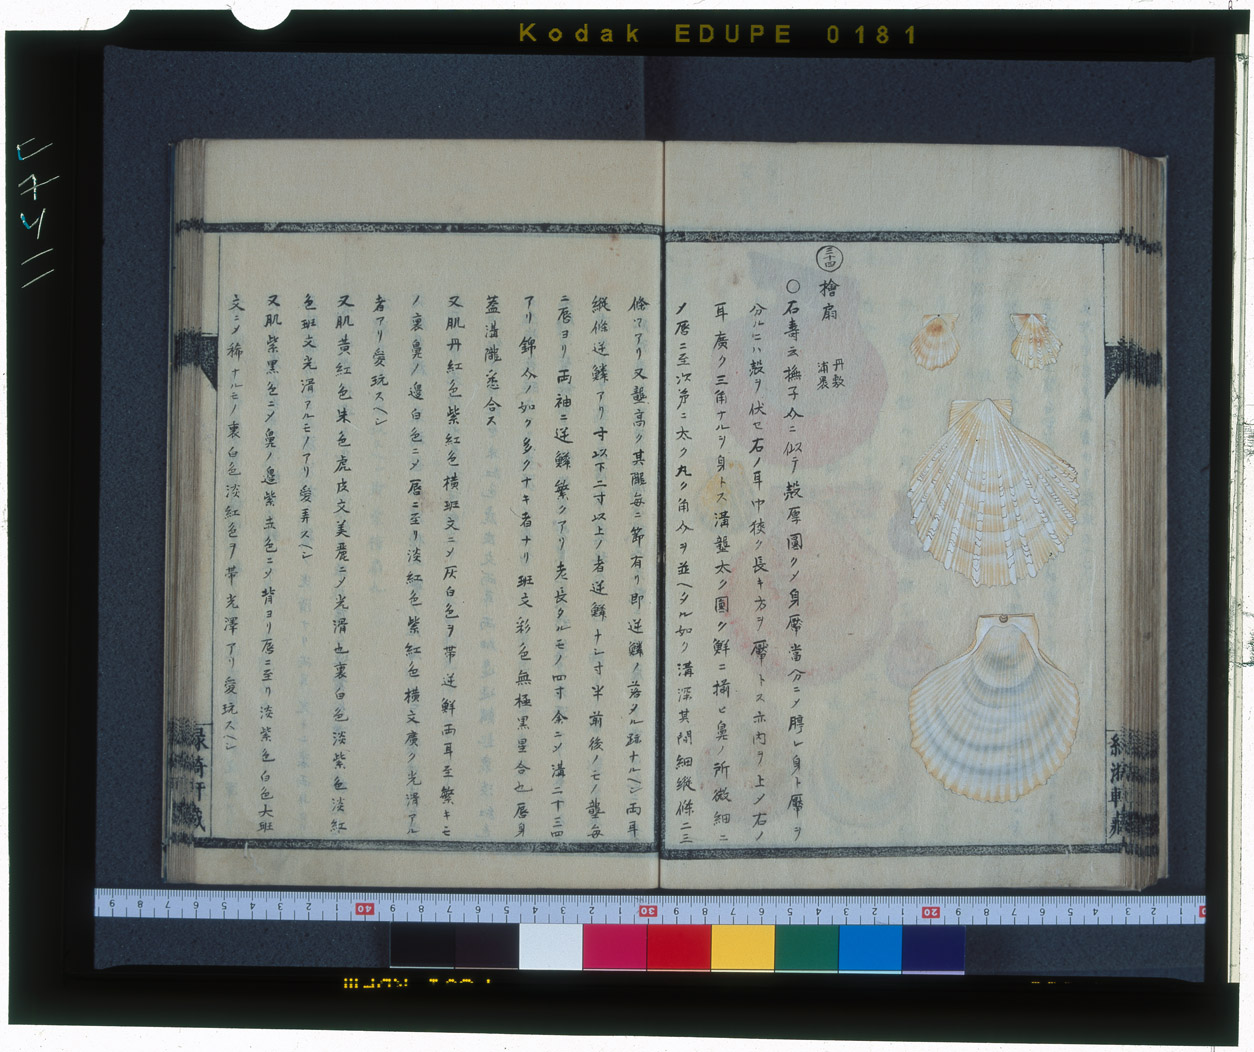 Kodak EDUPE 0181
三十四
檜扇 丹敷浦裏
〇石壽云撫子介ニ似テ殻厚圓クメ身厴當分ニメ脝レ身ト厴ヲ
分ルニハ殻ヲ伏セ右ノ耳巾狹ク長キ方ヲ厴トス亦内ヲ上メ右ノ
耳廣ク三角ナルヲ身トス溝壟太ク圓ク鮮ニ揃ヒ鼻ノ所微細ニ
メ唇ニ至次第ニ太ク丸ク角介ヲ並ヘタル如ク溝深其間細縦條二三
條ツヽアリ又壟高ク其隴毎ニ節有リ即逆鱗ノ落タル跡ナルヘシ両耳
縦條逆鱗アリ寸以下二寸以上ノ者逆鱗ナシ寸半前後ノモノ壟毎
ニ唇ヨリ両袖ニ逆鱗繁クアリ老長タルモノ四寸余ニメ溝二十三四
アリ錦介ノ如ク多クナキ者ナリ班文彩色無極黒星合也唇身
蓋溝隴悉合ス
又肌丹紅色紫紅色横班文ニメ灰白色ヲ帯逆鮮両耳至繁キモ
ノ裏鼻ノ邉白色ニメ唇ニ至リ淡紅色紫紅色横文廣ク光滑アル
者アリ愛玩スヘシ
又肌黄紅色朱色虎皮文美麗ニメ光滑也裏白色淡紫色淡紅
色班文光滑アルモノアリ愛弄スヘシ
又肌紫黒色ニメ鼻ノ邉紫赤色ニメ背ヨリ唇ニ至リ淡紫色白色大班
文ニメ稀ナルモノ裏白色淡紅色ヲ帯光澤アリ愛玩スヘシ